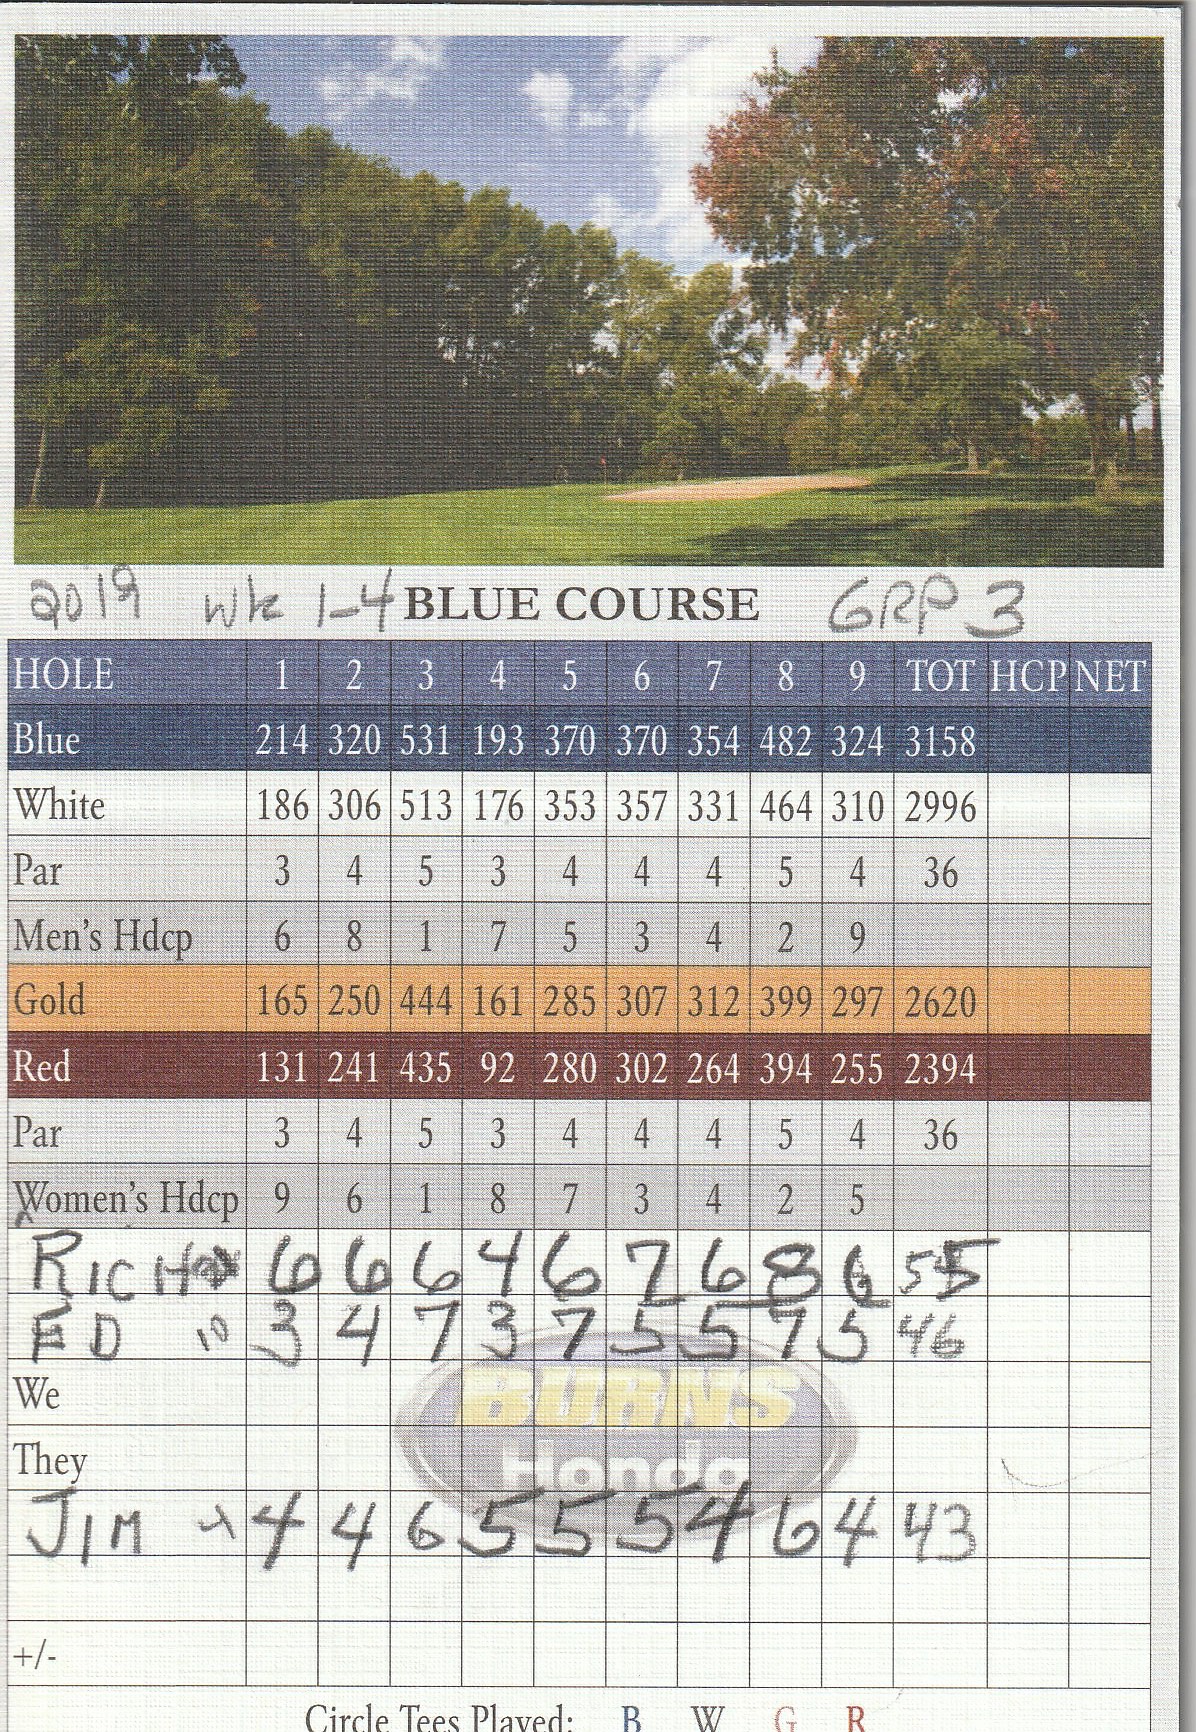 2019 wk 1-4 BLUE COURSE GRP 3
HOLE 1 2 3 4 5 6 7 8 9 TOT HCP NET
Blue 214 320 531 193 370 370 354 482 324 3158
White 186 306 513 176 353 357 331 464 310 2996
Par 3 4 5 3 4 4 4 5 4 36
Men's Hdcp 6 8 1 7 5 3 4 2 9
Gold 165 250 444 161 285 307 312 399 297 2620
Red 131 241 435 92 280 302 264 394 255 2394
Par 3 4 5 3 4 4 4 5 4 36
Women's Hdcp 9 6 1 8 7 3 4 2 5
RICH 6 6 6 4 6 7 6 8 6 55
ED 10 3 4 7 3 7 5 5 7 5 46
We
BURNS
They
Honda
JIM 4 4 6 5 5 5 4 6 4 43
+/-
Circle Tees Played: B W G R